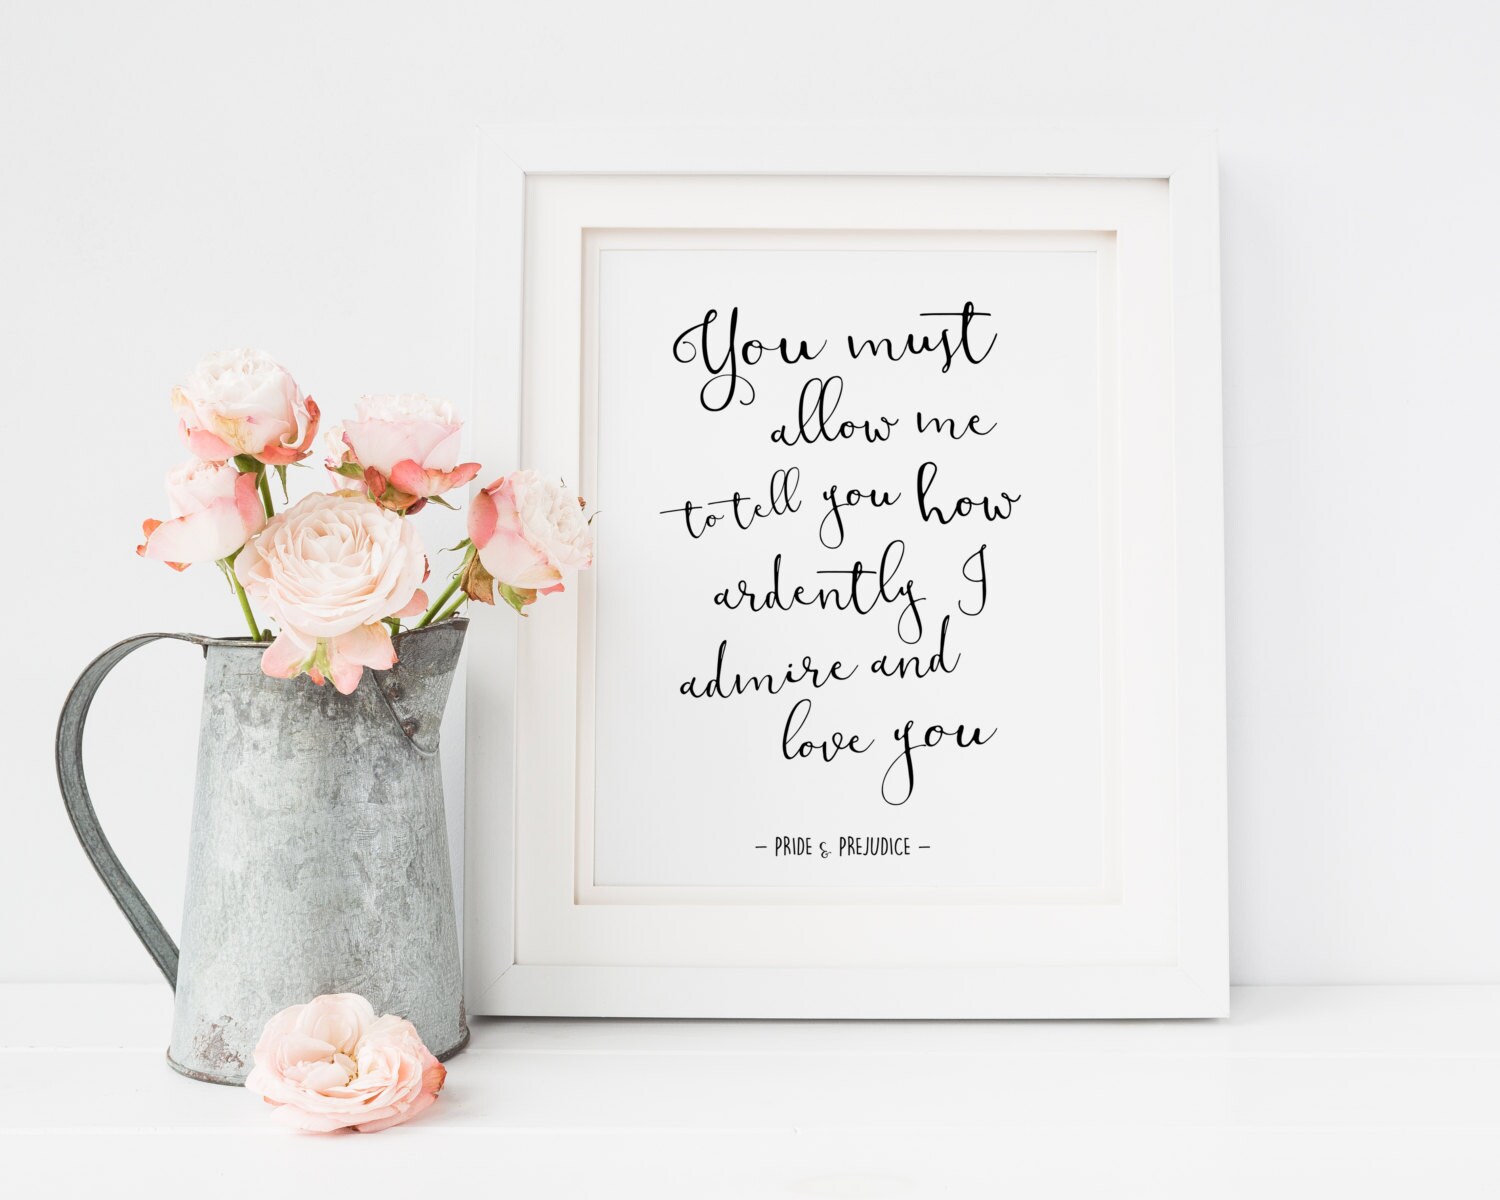 You must
allow me
to tell you how
ardently I
admire and
love you
– PRIDE & PREJUDICE –